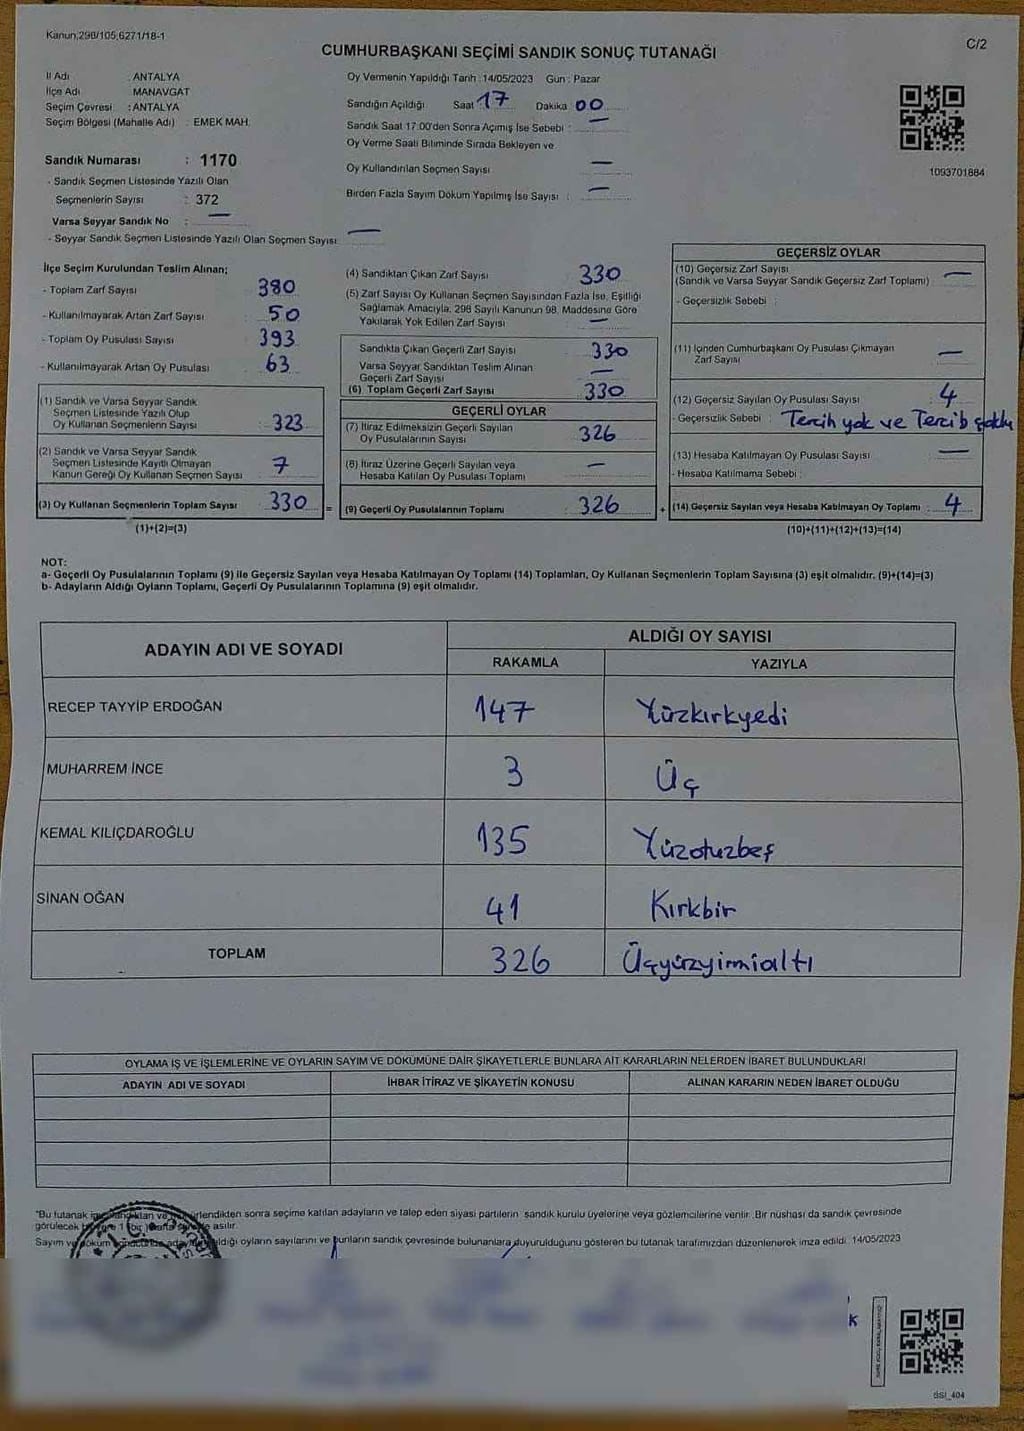 Kanun;298/105;6271/18-1
C/2
CUMHURBAŞKANI SEÇİMİ SANDIK SONUÇ TUTANAĞI
İl Adı : ANTALYA
İlçe Adı : MANAVGAT
Seçim Çevresi : ANTALYA
Seçim Bölgesi (Mahalle Adı) : EMEK MAH.
Sandık Numarası : 1170
- Sandık Seçmen Listesinde Yazılı Olan
Seçmenlerin Sayısı : 372
Varsa Seyyar Sandık No : —
- Seyyar Sandık Seçmen Listesinde Yazılı Olan Seçmen Sayısı: —
Oy Vermenin Yapıldığı Tarih : 14/05/2023 Gün : Pazar
Sandığın Açıldığı Saat 17 Dakika 00
Sandık Saat 17:00'den Sonra Açılmış İse Sebebi : —
Oy Verme Saati Bitiminde Sırada Bekleyen ve
Oy Kullandırılan Seçmen Sayısı —
Birden Fazla Sayım Döküm Yapılmış İse Sayısı : —
1093701884
İlçe Seçim Kurulundan Teslim Alınan;
- Toplam Zarf Sayısı 380
- Kullanılmayarak Artan Zarf Sayısı 50
- Toplam Oy Pusulası Sayısı 393
- Kullanılmayarak Artan Oy Pusulası 63
(1) Sandık ve Varsa Seyyar Sandık
Seçmen Listesinde Yazılı Olup
Oy Kullanan Seçmenlerin Sayısı : 323
(2) Sandık ve Varsa Seyyar Sandık
Seçmen Listesinde Kayıtlı Olmayan
Kanun Gereği Oy Kullanan Seçmen Sayısı : 7
(3) Oy Kullanan Seçmenlerin Toplam Sayısı : 330 =
(1)+(2)=(3)
(4) Sandıktan Çıkan Zarf Sayısı 330
(5) Zarf Sayısı Oy Kullanan Seçmen Sayısından Fazla İse, Eşitliği
Sağlamak Amacıyla, 298 Sayılı Kanunun 98. Maddesine Göre
Yakılarak Yok Edilen Zarf Sayısı —
Sandıkta Çıkan Geçerli Zarf Sayısı 330
Varsa Seyyar Sandıktan Teslim Alınan
Geçerli Zarf Sayısı —
(6) Toplam Geçerli Zarf Sayısı 330
GEÇERLİ OYLAR
(7) İtiraz Edilmeksizin Geçerli Sayılan
Oy Pusulalarının Sayısı 326
(8) İtiraz Üzerine Geçerli Sayılan veya
Hesaba Katılan Oy Pusulası Toplamı —
(9) Geçerli Oy Pusulalarının Toplamı : 326 +
GEÇERSİZ OYLAR
(10) Geçersiz Zarf Sayısı
(Sandık ve Varsa Seyyar Sandık Geçersiz Zarf Toplamı) —
- Geçersizlik Sebebi :
(11) İçinden Cumhurbaşkanı Oy Pusulası Çıkmayan
Zarf Sayısı —
(12) Geçersiz Sayılan Oy Pusulası Sayısı 4
- Geçersizlik Sebebi : Tercih yok ve Tercib çoklu
(13) Hesaba Katılmayan Oy Pusulası Sayısı —
- Hesaba Katılmama Sebebi :
(14) Geçersiz Sayılan veya Hesaba Katılmayan Oy Toplamı : 4
(10)+(11)+(12)+(13)=(14)
NOT:
a- Geçerli Oy Pusulalarının Toplamı (9) ile Geçersiz Sayılan veya Hesaba Katılmayan Oy Toplamı (14) Toplamları, Oy Kullanan Seçmenlerin Toplam Sayısına (3) eşit olmalıdır. (9)+(14)=(3)
b- Adayların Aldığı Oyların Toplamı, Geçerli Oy Pusulalarının Toplamına (9) eşit olmalıdır.
ADAYIN ADI VE SOYADI ALDIĞI OY SAYISI
RAKAMLA YAZIYLA
RECEP TAYYİP ERDOĞAN 147 Yüzkırkyedi
MUHARREM İNCE 3 Üç
KEMAL KILIÇDAROĞLU 135 Yüzotuzbeş
SİNAN OĞAN 41 Kırkbir
TOPLAM 326 Üçyüzyirmialtı
OYLAMA İŞ VE İŞLEMLERİNE VE OYLARIN SAYIM VE DÖKÜMÜNE DAİR ŞİKAYETLERLE BUNLARA AİT KARARLARIN NELERDEN İBARET BULUNDUKLARI
ADAYIN ADI VE SOYADI İHBAR İTİRAZ VE ŞİKAYETİN KONUSU ALINAN KARARIN NEDEN İBARET OLDUĞU
"Bu tutanak seçime katılan adayların ve talep eden siyasi partilerin sandık kurulu üyelerine veya gözlemcilerine verilir. Bir nüshası da sandık çevresinde
görülecek asılır.
Sayım ve oyların sayılarını ve bunların sandık çevresinde bulunanlara duyurulduğunu gösteren bu tutanak tarafımızdan düzenlenerek imza edildi. 14/05/2023
dSI_404